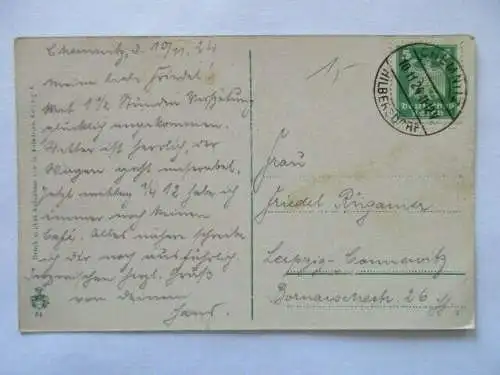 Chemnitz, d. 10/11. 24
Meine liebe Friedel!
Mit 1 1/2 Stunden Verspätung
glücklich angekommen.
Wetter ist herrlich, der
Wagen geht miserabel.
Jetzt mittag 1/4 12 habe ich
immer noch keinen
Alles nähere schreibe
ich dir noch ausführlich
Inzwischen herzl. Grüße
von deinem
Hans.
15
CHEMNITZ
10.11.24
HILBERSDORF
Deutsches
Reich
Frau
Friedel Rügamer
Leipzig-Connewitz
Bornaischestr. 26